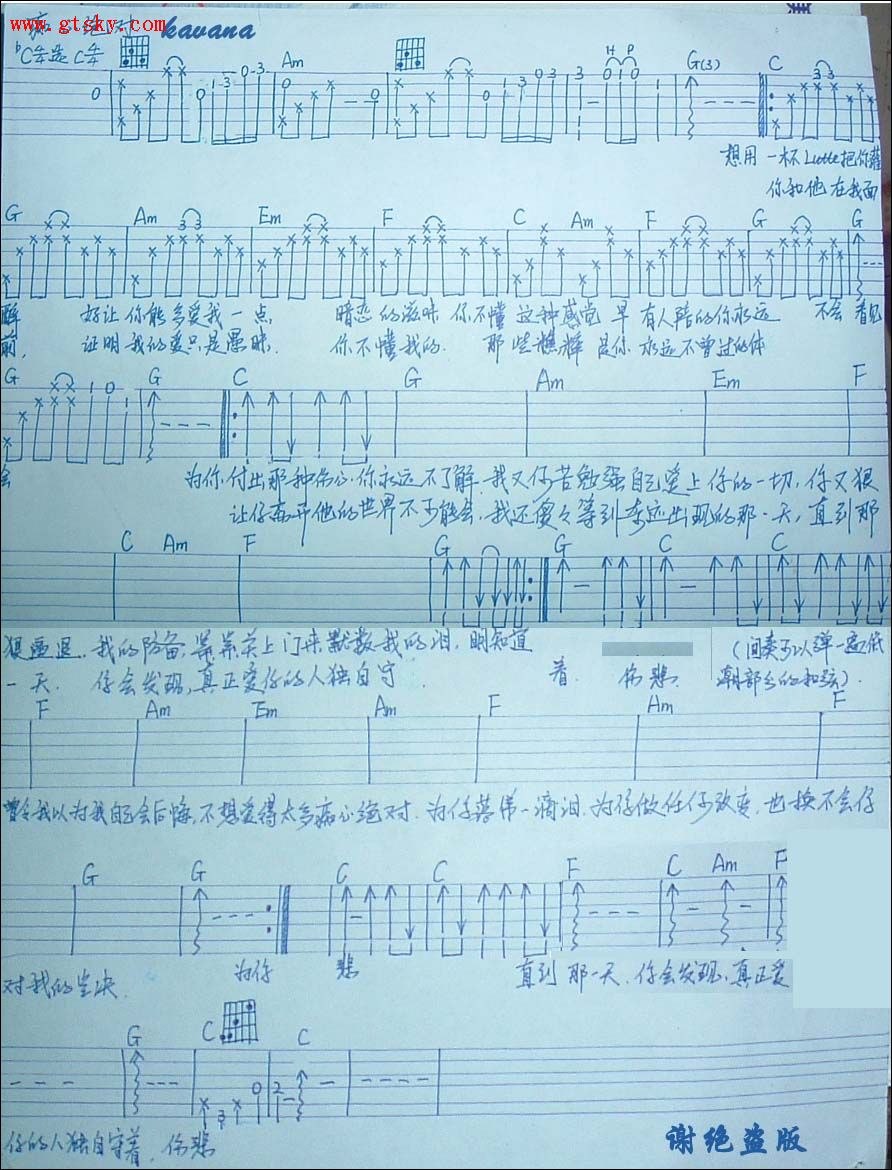 www.gtsky.com kavana
ᵇC半音 C半
Am H P G(3) C
0 1 3 0 3 0 0 0 1 3 0 3 3 0 1 0 1 3 3
想用一杯Latte把你灌
你和他在我面
G Am Em F C Am F G G
醉 好让你能多爱我一点 暗恋的滋味 你不懂这种感觉 早有人陪的你永远 不会看见
前 证明我的爱只是愚昧 你不懂我的 那些憔悴 是你永远不曾过的体
G G C G Am Em F
会 为你付出那种伤心你永远不了解 我又何苦勉强自己爱上你的一切 你又狠
让你离开他的世界不可能会 我还傻々等到奇迹出现的那一天,直到那
C Am F G G C C
狠逼退 我的防备 静静关上门来默数我的泪 明知道
一天 你会发现,真正爱你的人独自守 着 伤悲 (间奏可以弹一遍低
潮部分的和弦)
F Am Em Am F Am F
曾经我以为我自己会后悔,不想爱得太多痴心绝对 为你落第一滴泪 为你做任何改变 也换不会你
G G C C F C Am F
对我的坚决 为你 悲 直到那一天 你会发现,真正爱
G C C
3 0 2
你的人独自守着 伤悲
谢绝盗版